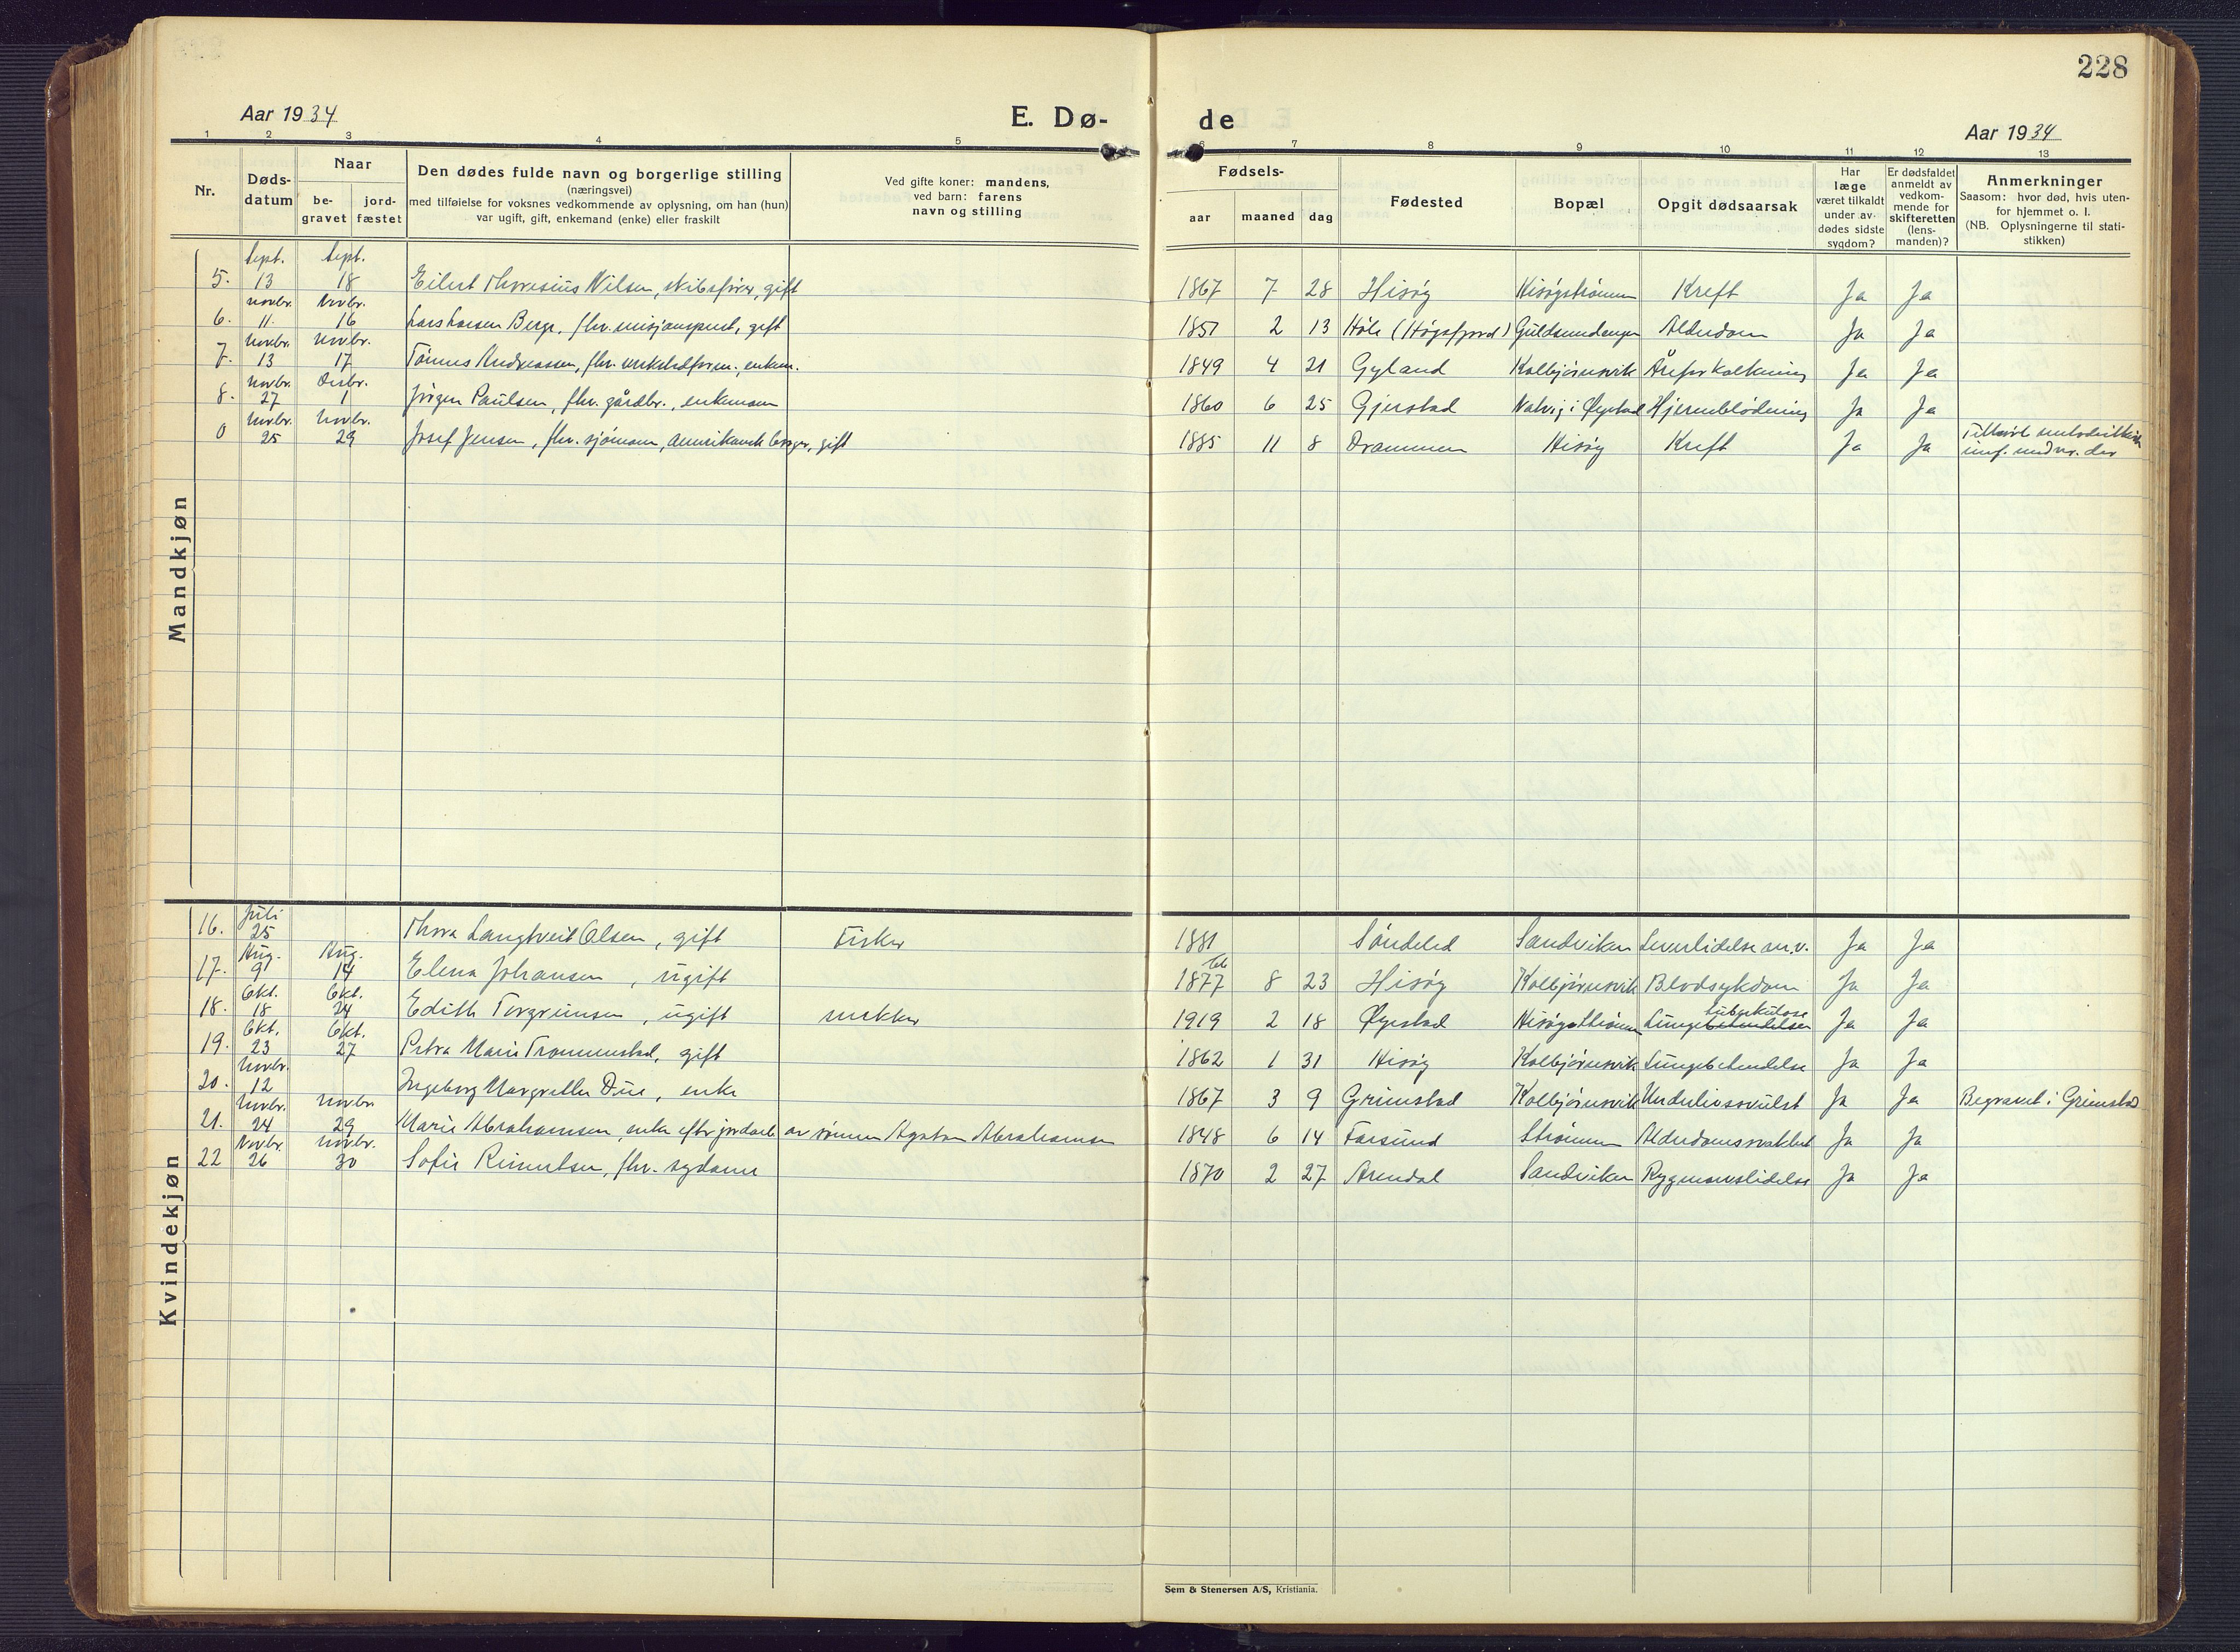 228
Aar 1934
E. Dø-
de
Aar 1934
1 2 3 4 5 6 7 8 9 10 11 12 13
Nr.
Døds-
datum
Naar
be-
gravet
jord-
fæstet
Den dødes fulde navn og borgerlige stilling
(næringsvei)
med tilføielse for voksnes vedkommende av oplysning, om han (hun)
var ugift, gift, enkemand (enke) eller fraskilt
Ved gifte koner: mandens,
ved barn: farens
navn og stilling
Fødsels-
aar
maaned
dag
Fødested
Bopæl
Opgit dødsaarsak
Har
læge
været tilkaldt
under av-
dødes sidste
sygdom?
Er dødsfaldet
anmeldt av
vedkom-
mende for
skifteretten
(lens-
manden)?
Anmerkninger
Saasom: hvor død, hvis uten-
for hjemmet o. l.
(NB. Oplysningerne til stati-
stikken)
Mandkjøn
Sept. Sept.
5. 13 18 Eilert Thoresius Nilsen, skibsfører, gift 1867 7 28 Hisøy Hisøystrømm Kreft Ja Ja
Novbr. Novbr.
6. 11. 16 Lars Larsen Berge, fhv. misjonsprest, gift 1851 2 13 Høle (Høgsfjord) Alderdom Ja Ja
Novbr. Novbr.
7. 13 17 Tønnes Andreassen, fhv. enkem. 1849 4 21 Gyland Kolbjørnsvik Åreforkalkning Ja Ja
Novbr. Desbr.
8. 27 1 Jörgen Paulsen, fhv. gårdbr., enkemann 1860 6 25 Gjerstad i Øyestad Hjerneblødning Ja Ja
Novbr. Novbr.
0 25 29 Josef Jensen, fhv. sjømann, amerikansk borger, gift 1885 11 8 Drammen Hisøy Kreft Ja Ja Tilhørte
Kvindekjøn
Juli
16. 25 Thora Langtveit Olsen, gift Fisker 1881 Søndeled Sandviken Leverlidelse m.v. Ja Ja
Aug. Aug.
17. 9 14 Elena Johansen, ugift 1877 8 23 Hisøy Kolbjørnsvik Blodsykdom Ja Ja
Okt. Okt.
18. 18 24 Edith Torgrimsen, ugift 1919 2 18 Øyestad Hisøystrømm Lungebetendelse tuberkulose Ja Ja
Okt. Okt.
19. 23 27 Petra Marie Trommestad, gift 1862 1 31 Hisøy Kolbjørnsvik Lungebetendelse Ja Ja
Novbr.
20. 12 Ingeborg Margrethe Due, enke 1867 3 9 Grimstad Kolbjørnsvik Underlivssvulst Ja Ja Begravet i Grimstad
Novbr. Novbr.
21. 24 29 Marie Abrahamsen, enke efter jordarb. av sønnen Agaton Abrahamsen 1848 6 14 Farsund Strømmen Alderdomssvakhet Ja Ja
Novbr. Novbr.
22 26 30 Sofie Reinertsen, fhv. sydame 1870 2 27 Arendal Sandviken Rygmarvslidelse Ja Ja
Sem & Stenersen A/S, Kristiania.